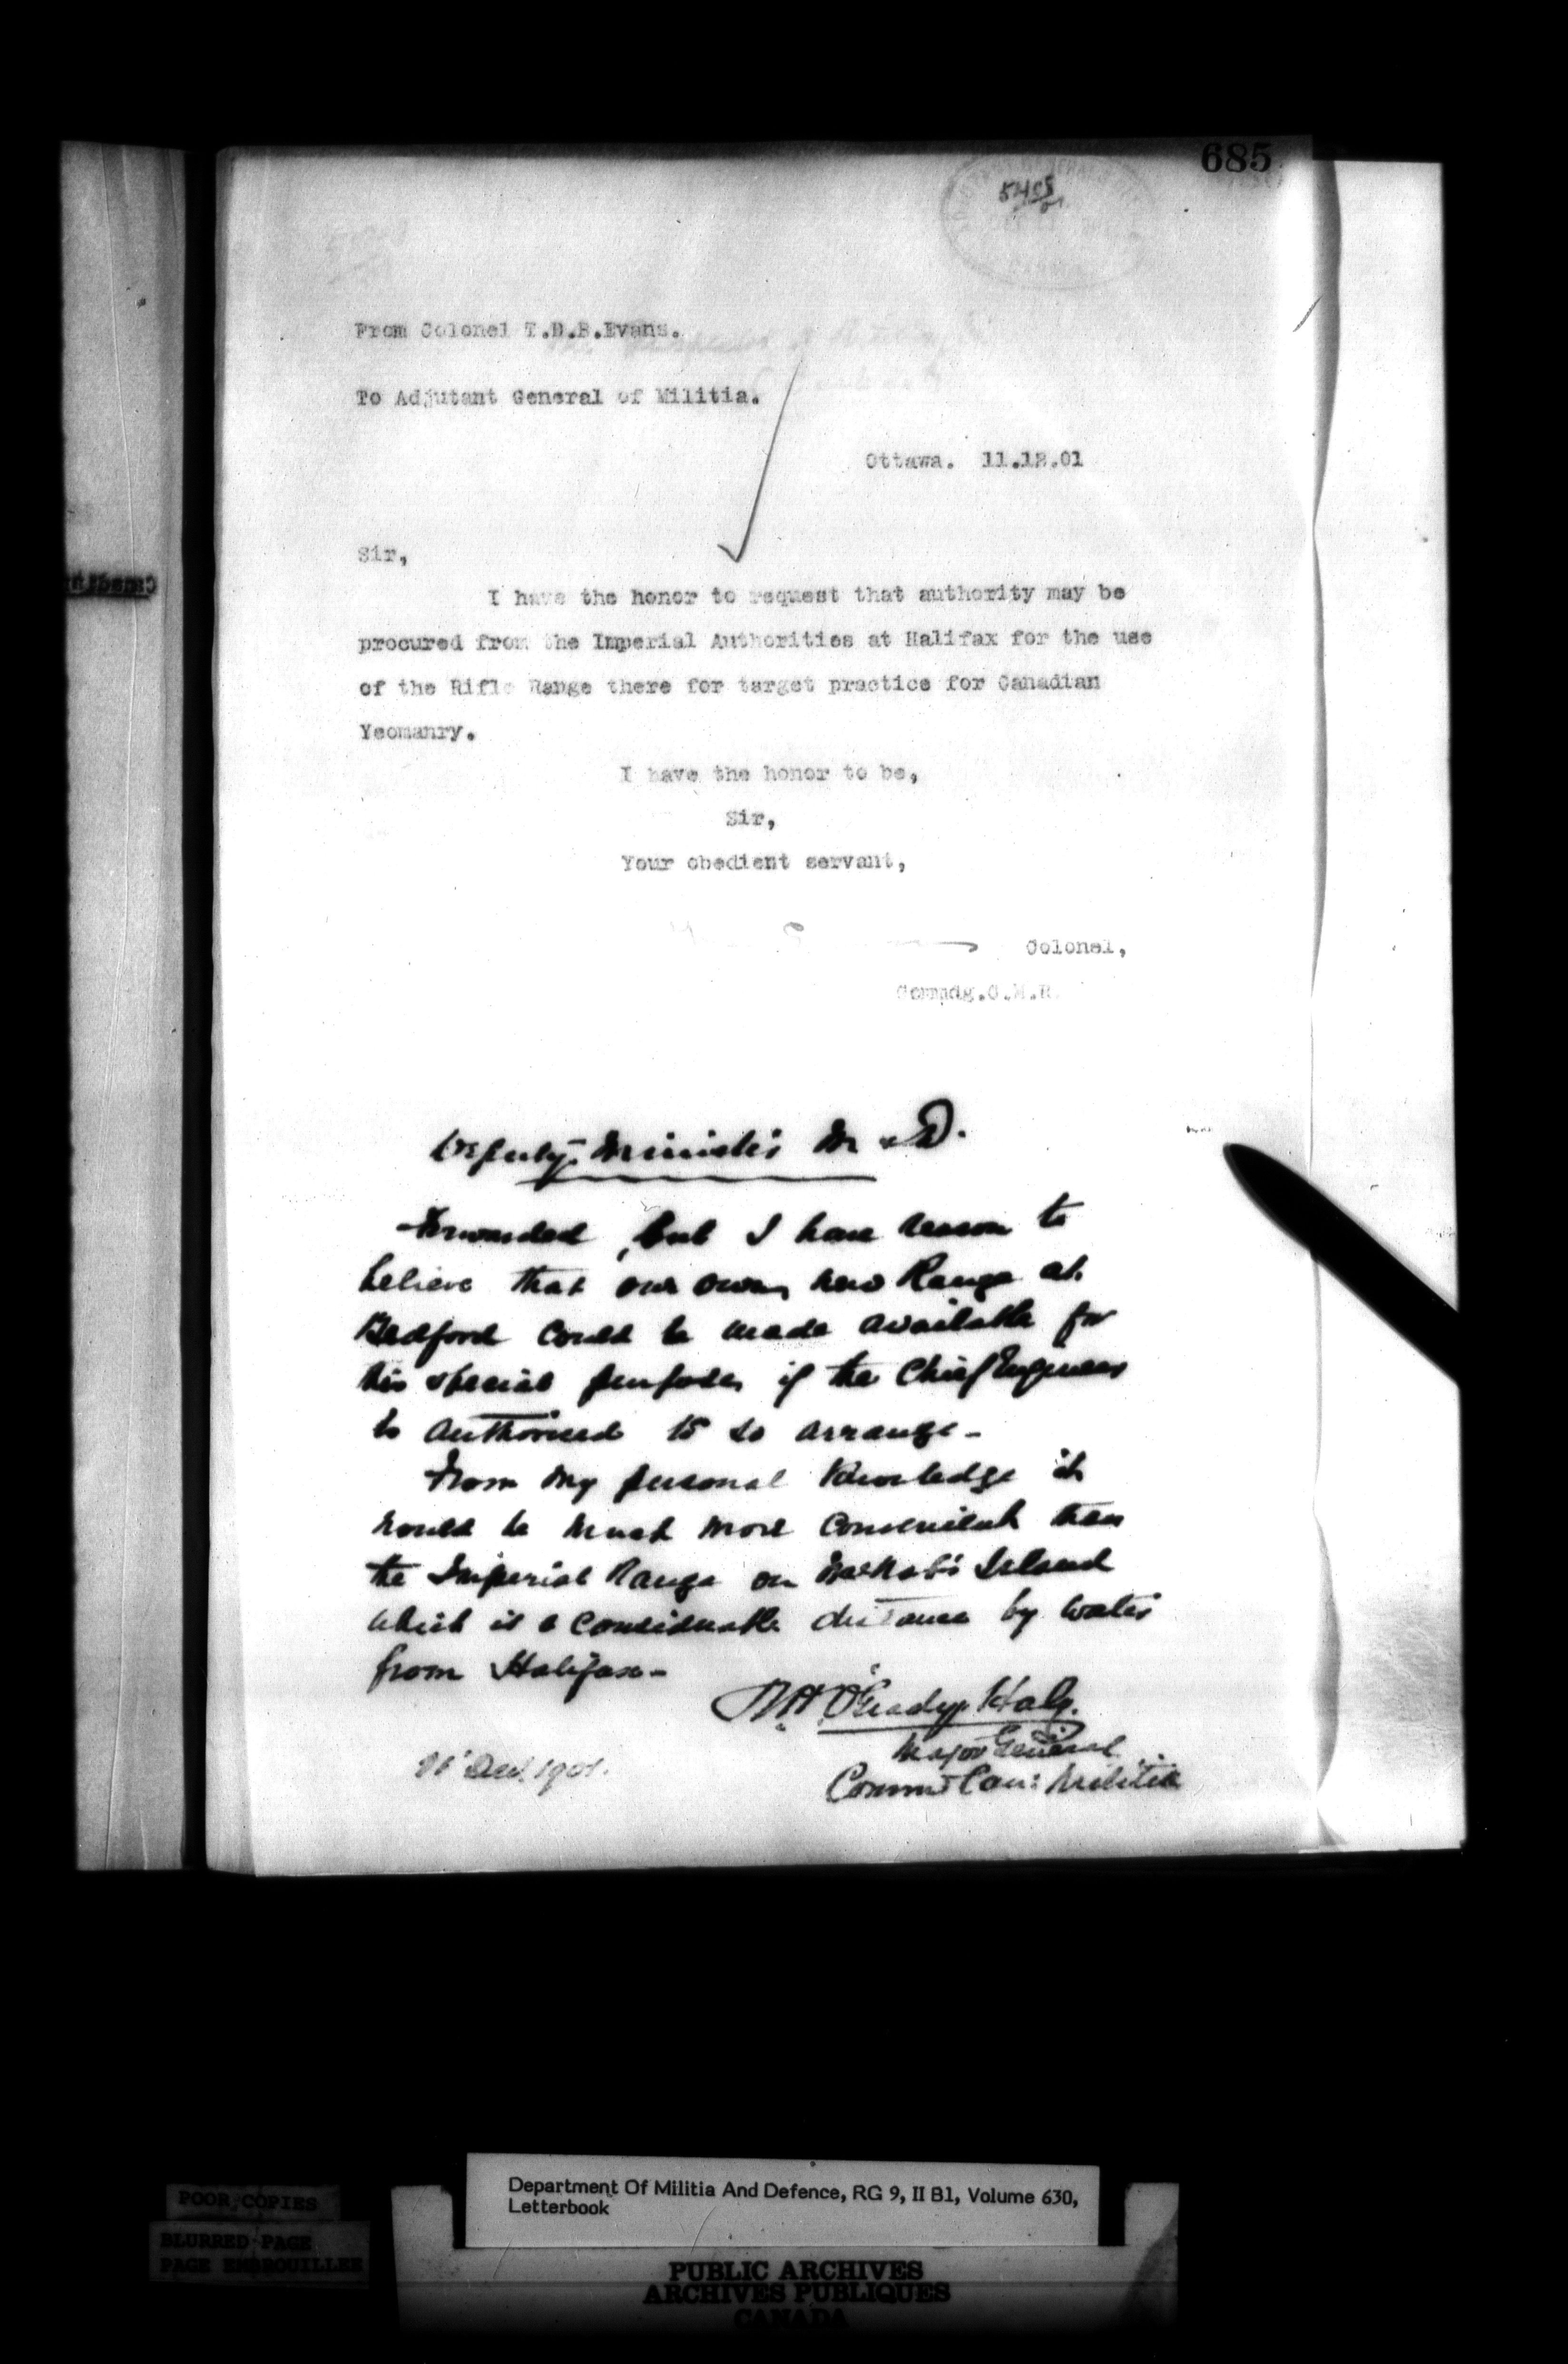 685
5455
01
From Colonel T.D.B.Evans.
To Adjutant General of Militia.
Ottawa. 11.12.01
Sir,
I have the honor to request that authority may be
procured from the Imperial Authorities at Halifax for the use
of the Rifle Range there for target practice for Canadian
Yeomanry.
I have the honor to be,
Sir,
Your obedient servant,
Colonel,
Commdg.C.M.R.
Deputy Minister M & D.
Forwarded, but I have reason to
believe that our own new Range at
Bedford could be made available for
this special purpose, if the Chief Engineer
is authorised to so arrange -
From my personal knowledge it
would be much more convenient than
the Imperial Range on McNab's Island
which is a considerable distance by water
from Halifax -
O'Grady Haly.
Major General
Commd Can: Militia
Dec. 1901.
Department Of Militia And Defence, RG 9, II B1, Volume 630,
Letterbook
POOR COPIES
BLURRED PAGE
PAGE EMBROUILLEE
PUBLIC ARCHIVES
ARCHIVES PUBLIQUES
CANADA